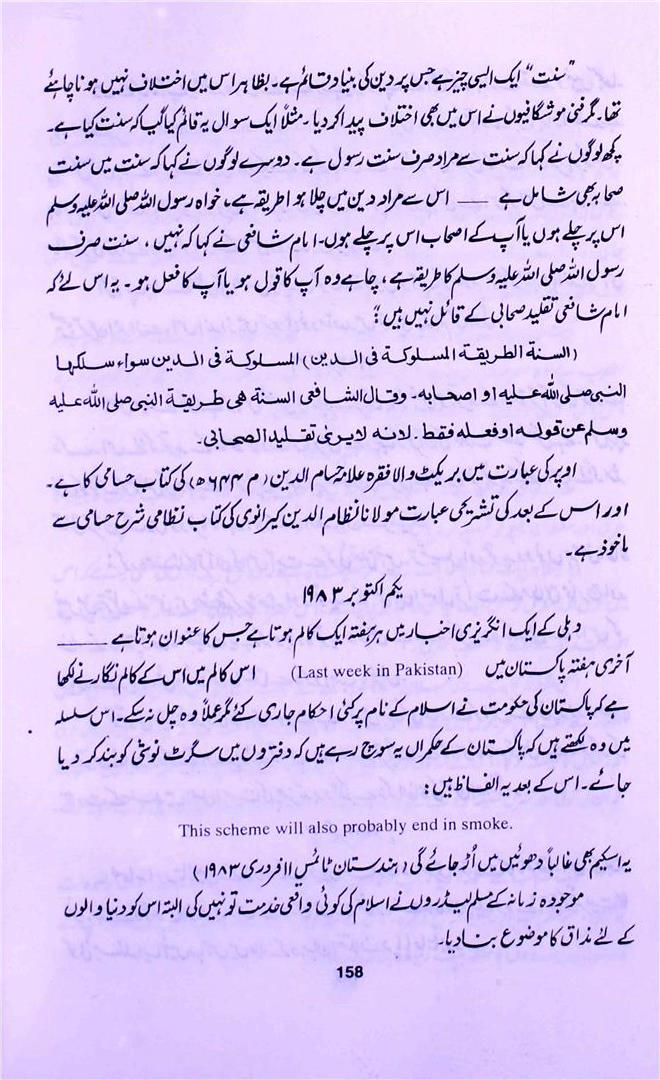 ”سنت“ ایک ایسی چیز ہے جس پر دین کی بنیاد قائم ہے۔ بظاہر اس میں اختلاف نہیں ہونا چاہئے
تھا۔ مگر فنی موشگافیوں نے اس میں بھی اختلاف پیدا کر دیا۔ مثلاً ایک سوال یہ قائم کیا گیا کہ سنت کیا ہے۔
کچھ لوگوں نے کہا کہ سنت سے مراد صرف سنت رسول ہے۔ دوسرے لوگوں نے کہا کہ سنت میں سنت
صحابہ بھی شامل ہے ــــــ اس سے مراد دین میں چلا ہوا طریقہ ہے، خواہ رسول اللہ صلی اللہ علیہ وسلم
اس پر چلے ہوں یا آپ کے اصحاب اس پر چلے ہوں۔ امام شافعی نے کہا کہ نہیں، سنت صرف
رسول اللہ صلی اللہ علیہ وسلم کا طریقہ ہے، چاہے وہ آپ کا قول ہو یا آپ کا فعل ہو۔ یہ اس لئے کہ
امام شافعی تقلید صحابی کے قائل نہیں ہیں؛
(السنة الطريقة المسلوكة فى الدين) المسلوكة فى الدين سواء سلكها
النبى صلى الله عليه او اصحابه۔ وقال الشافعى السنة هى طريقة النبى صلى الله عليه
وسلم عن قوله او فعله فقط۔ لانه لا يرى تقليد الصحابى۔
اوپر کی عبارت میں بریکٹ والا فقرہ علامہ حسام الدین (م ۶۴۴ھ) کی کتاب حسامی کا ہے۔
اور اس کے بعد کی تشریحی عبارت مولانا نظام الدین کیرانوی کی کتاب نظامی شرح حسامی سے
ماخوذ ہے۔
یکم اکتوبر ۱۹۸۳
دہلی کے ایک انگریزی اخبار میں ہر ہفتہ ایک کالم ہوتا ہے جس کا عنوان ہوتا ہے ــــــ
آخری ہفتہ پاکستان میں (Last week in Pakistan) اس کالم میں اس کے کالم نگار نے لکھا
ہے کہ پاکستان کی حکومت نے اسلام کے نام پر کئی احکام جاری کئے مگر عملاً وہ چل نہ سکے۔ اس سلسلہ
میں وہ لکھتے ہیں کہ پاکستان کے حکمراں یہ سوچ رہے ہیں کہ دفتروں میں سگرٹ نوشی کو بند کر دیا
جائے۔ اس کے بعد یہ الفاظ ہیں:
This scheme will also probably end in smoke.
یہ اسکیم بھی غالباً دھوئیں میں اُڑ جائے گی (ہندستان ٹائمس ۱۱ فروری ۱۹۸۳)
موجودہ زمانہ کے مسلم لیڈروں نے اسلام کی کوئی واقعی خدمت تو نہیں کی البتہ اس کو دنیا والوں
کے لئے مذاق کا موضوع بنا دیا۔
158